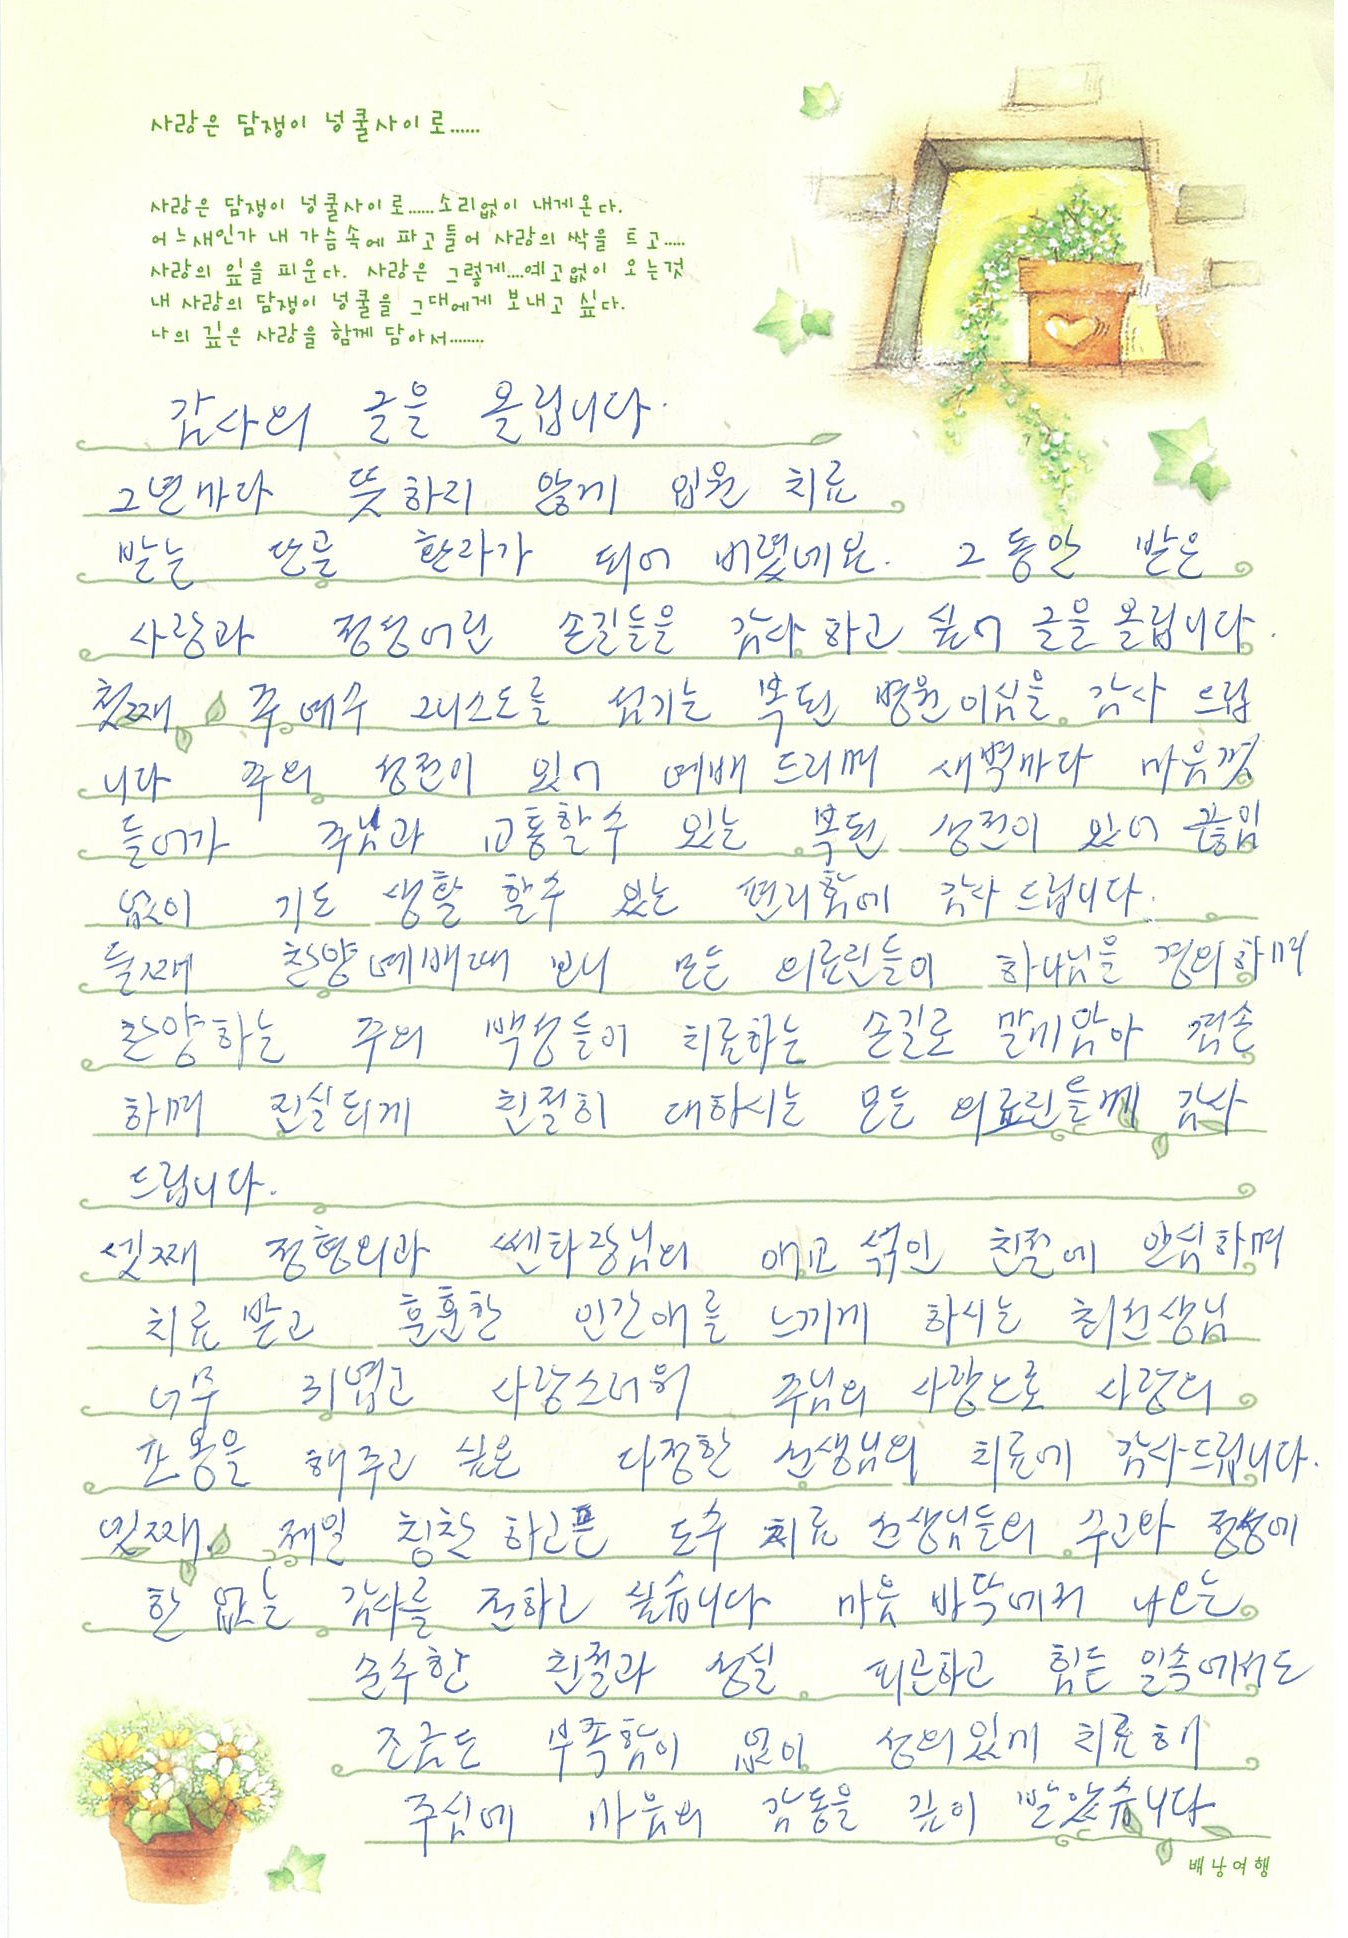 사랑은 담쟁이 넝쿨사이로......
사랑은 담쟁이 넝쿨사이로......소리없이 내게온다.
어느새인가 내 가슴속에 파고들어 사랑의 싹을 트고.....
사랑의 잎을 피운다. 사랑은 그렇게....예고없이 오는것
내 사랑의 담쟁이 넝쿨을 그대에게 보내고 싶다.
나의 깊은 사랑을 함께 담아서........
감사의 글을 올립니다.
2년마다 뜻하지 않게 입원 치료
받는 단골 환자가 되어 버렸네요. 그 동안 받은
사랑과 정성어린 손길들을 감사 하고 싶어 글을 올립니다.
첫째 주 예수 그리스도를 섬기는 복된 병원이심을 감사 드립
니다 주의 성전이 있어 예배 드리며 새벽마다 마음껏
들어가 주님과 교통할수 있는 복된 성전이 있어 끊임
없이 기도 생활 할수 있는 편리함에 감사 드립니다.
둘째 찬양 예배때 보니 모든 의료린들이 하나님을 경외하며
찬양하는 주의 백성들이 치료하는 손길로 말미암아 겸손
하며 진실되게 친절히 대하시는 모든 의료린들께 감사
드립니다.
셋째 정형외과 쎈타장님의 애교 섞인 친절에 안심하며
치료 받고 훈훈한 인간애를 느끼게 하시는 최선생님
너무 귀엽고 사랑스러워 주님의 사랑으로 사랑의
포옹을 해주고 싶은 다정한 선생님의 치료에 감사드립니다.
넷째. 제일 칭찬 하고픈 도수 치료 선생님들의 수고와 정성에
한 없는 감사를 전하고 싶습니다 마음 바닥에서 나오는
순수한 친절과 성실 피곤하고 힘든 일속에서도
조금도 부족함이 없이 성의있게 치료해
주심에 마음의 감동을 깊이 받았습니다
배낭여행